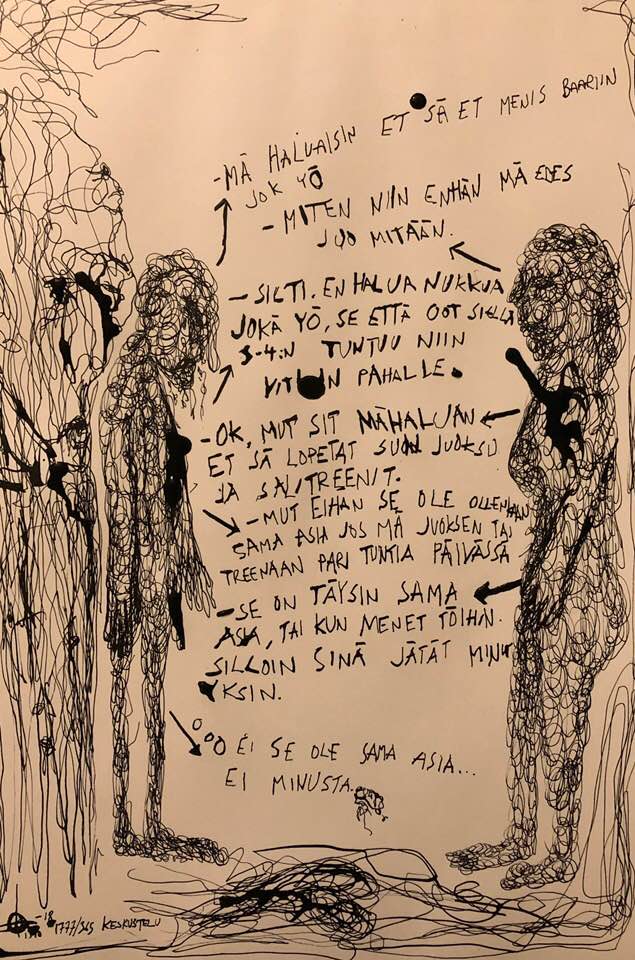 -MÄ HALUAISIN ET SÄ ET MENIS BAARIIN
JOK YÖ
- MITEN NIIN ENHÄN MÄ EDES
JUO MITÄÄN.
- SILTI. EN HALUA NUKKUA
JOKA YÖ, SE ETTÄ OOT SIELLÄ
3-4:N TUNTUU NIIN
VITUN PAHALLE.
- OK, MUT SIT MÄ HALUAN
ET SÄ LOPETAT SUN JUOKSU
JA SALITREENIT.
- MUT EIHAN SE OLE OLLENKAAN
SAMA ASIA JOS MÄ JUOKSEN TAI
TREENAAN PARI TUNTIA PÄIVÄSSÄ
- SE ON TÄYSIN SAMA
ASIA, TAI KUN MENET TÖIHIN.
SILLOIN SINÄ JÄTÄT MINUT
YKSIN.
EI SE OLE SAMA ASIA...
EI MINUSTA.
-18
1777/365 KESKUSTELU